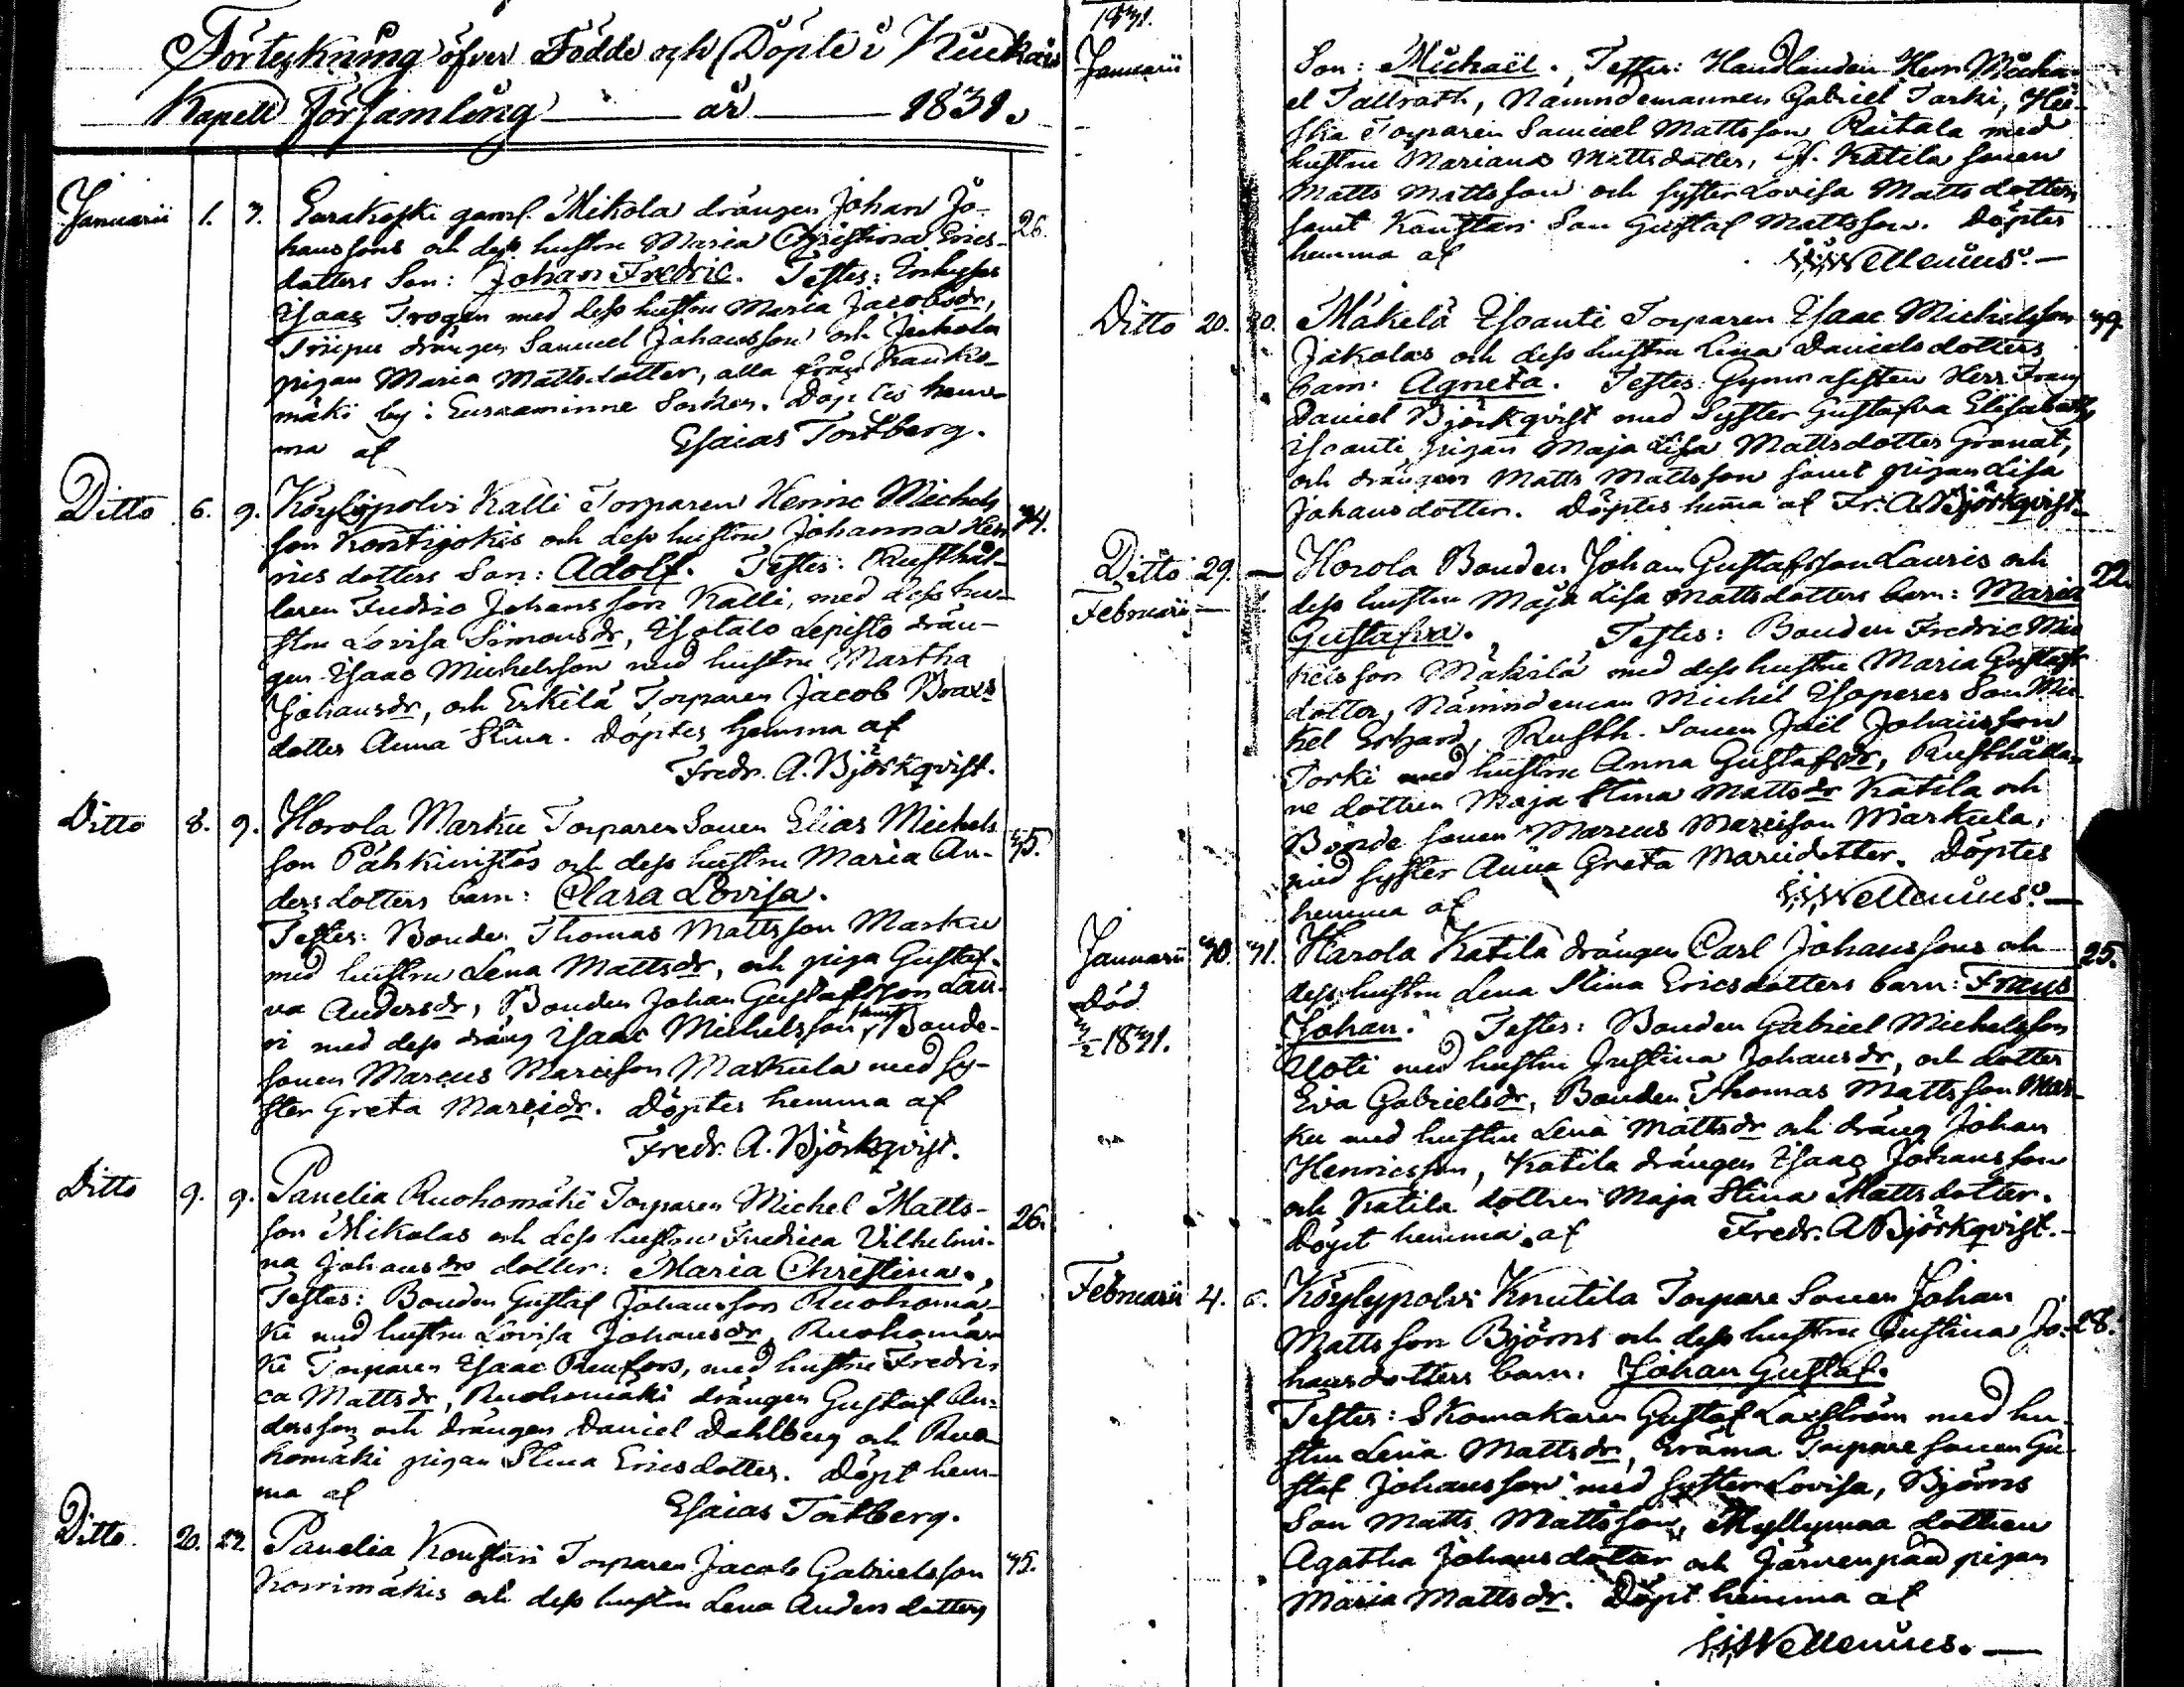 Förteckning öfver Födde och Döpte i Kiukais
Kapell Församling år 1831.
Januarii 1. 3. Eurakoski gaml. Mikola drängen Johan Jo- 26.
hanssons och dess hustru Maria Christina Erics-
dotters Son: Johan Fredric. Testes:
Isaac Trogen med dess hustru Maria Jacobsdr,
drängen Samuel Johansson och Jaakola
pigan Maria Mattsdotter, alla från Kauko-
mäki by i Euraaminne Socken. Döptes hem-
ma af Esaias Tortberg.
Ditto 6. 9. Köylypolvi Kalli Torparen Henric Michels 34.
son Kontijokis och dess hustru Johanna Hen
rics dotters Son: Adolf. Testes: Rusthål-
laren Fredric Johansson Kalli, med dess hu-
stru Lovisa Simonsdr, Isotalo Lepistö drän-
gen Isaac Michelsson med hustru Martha
Johansdr, och Erkilä Torparen Jacob Braxs
dotter Anna Stina. Döptes hemma af
Fredr. A. Björkqvist.
Ditto 8. 9. Horola Marku Torpare Sonen Elias Michels 35.
son Pähkinistös och dess hustru Maria An-
ders dotters barn: Clara Lovisa.
Testes: Bonden Thomas Mattsson Marku
med hustru Lena Mattsdr, och piga Gustaf-
va Andersdr, Bonden Johan Gustafsson Lau-
ri med dess dräng Isaac Michelsson, samt Bonde-
sonen Marcus Marcisson Markula med sy-
ster Greta Marcidr. Döptes hemma af
Fredr. A. Björkqvist.
Ditto 9. 9. Panelia Ruohomäki Torparen Michel Matts- 26.
son Mikolas och dess hustru Fredrica Vilhelmi-
na Johansdrs dotter: Maria Christina.
Testes: Bonden Gustaf Johansson Ruohomä-
ki med hustru Lovisa Johansdr, Ruohomä-
ki Torparen Isaac Renfors, med hustru Fredri-
ca Mattsdr, Ruohomäki drängen Gustaf An-
dersson och drängen Daniel Dahlberg och Ruo-
homäki pigan Stina Ericsdotter. Döpt hem-
ma af Esaias Tortberg.
Ditto 20. 22. Panelia Konstari Torparen Jacob Gabrielsson 35.
Korrimäkis och dess hustru Lena Anders dotters
1831.
Januarii Son: Michaël. Testes: Handlanden Herr Micha-
el Tallroth, Nämndemannen Gabriel Torki,
Torparen Samuel Mattsson Raitala med
hustru Mariana Mattsdotter, Katila sonen
Matts Mattsson och syster Lovisa Mattsdotter,
samt Konstari Son Gustaf Mattsson. Döptes
hemma af Wellenius.
Ditto 20. 30. Mäkelä Isoanti Torparen Isaac Michelsson 39.
Jakolas och dess hustru Lena Danielsdotters
barn: Agneta. Testes: Gymnasisten Herr Frans
Daniel Björkqvist med Syster Gustafva Elisabeth,
Isoanti pigan Maja Lisa Mattsdotter Granat,
och drängen Matts Mattsson samt pigan Lisa
Johansdotter. Döptes hemma af Fr. A. Björkqvist.
Ditto 29. Horola Bonden Johan Gustafsson Lauris och 22.
Februarii dess hustru Maja Lisa Mattsdotters barn: Maria
Gustafva. Testes: Bonden Fredric Mic
helsson Mäkilä med dess hustru Maria Gustafs
dotter, Nämndeman Michel Isoperes Son Mic-
hel Erhard, Rusth. Sonen Joël Johansson
Torki med hustru Anna Gustafsdr, Rusthålla-
re dottren Maja Stina Mattsdr Katila och
Bonde sonen Marcus Marcisson Markula,
med syster Anna Greta Marcidotter. Döptes
hemma af Wellenius.
Januarii 30. 31. Harola Katila drängen Carl Johanssons och 25.
Död dess hustru Lena Stina Ericsdotters barn: Frans
1831. Johan. Testes: Bonden Gabriel Michelsson
Uoti med hustru Justina Johansdr, och dotter
Eva Gabrielsdr, Bonden Thomas Mattsson Mar-
ku med hustru Lena Mattsdr och dräng Johan
Henricsson, Katila drängen Isaac Johansson
och Katila dottren Maja Stina Mattsdotter.
Döpt hemma af Fredr. A Björkqvist.
Februarii 4. 6. Köylypolvi Knutila Torpare Sonen Johan
Mattsson Björns och dess hustru Justina Jo- 28.
hansdotters barn: Johan Gustaf.
Testes: Skomakaren Gustaf Laxström med hu-
stru Lena Mattsdr, Eräma Torpare sonen Gu-
staf Johansson med syster Lovisa, Björns
Son Matts Mattsson, Myllymaa dottren
Agatha Johansdotter och Järvenpää pigan
Maria Mattsdr. Döpt hemma af
Wellenius.